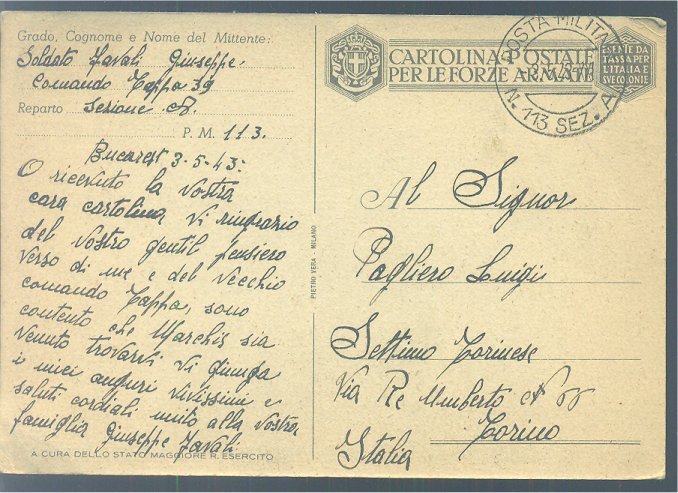 Grado, Cognome e Nome del Mittente:
Soldato Zavali Giuseppe
Comando Tappa 39
Reparto Sezione A.
P. M. 113.
Bucarest 3-5-43:
O ricevuto la vostra
cara cartolina vi ringrazio
del vostro gentil pensiero
verso di me e del vecchio
comando Tappa, sono
contento che Marchis sia
venuto trovarvi vi giunga
i miei auguri vivissimi e
saluti cordiali unito alla vostra
famiglia Giuseppe Zavali
A CURA DELLO STATO MAGGIORE R. ESERCITO
PIETRO VERA - MILANO
CARTOLINA POSTALE
PER LE FORZE ARMATE
ESENTE DA
TASSA PER
L'ITALIA E
SUE COLONIE
POSTA MILITARE
N. 113 SEZ. A
Al Signor
Pagliero Luigi
Settimo Torinese
Via Re Umberto N
Torino
Italia